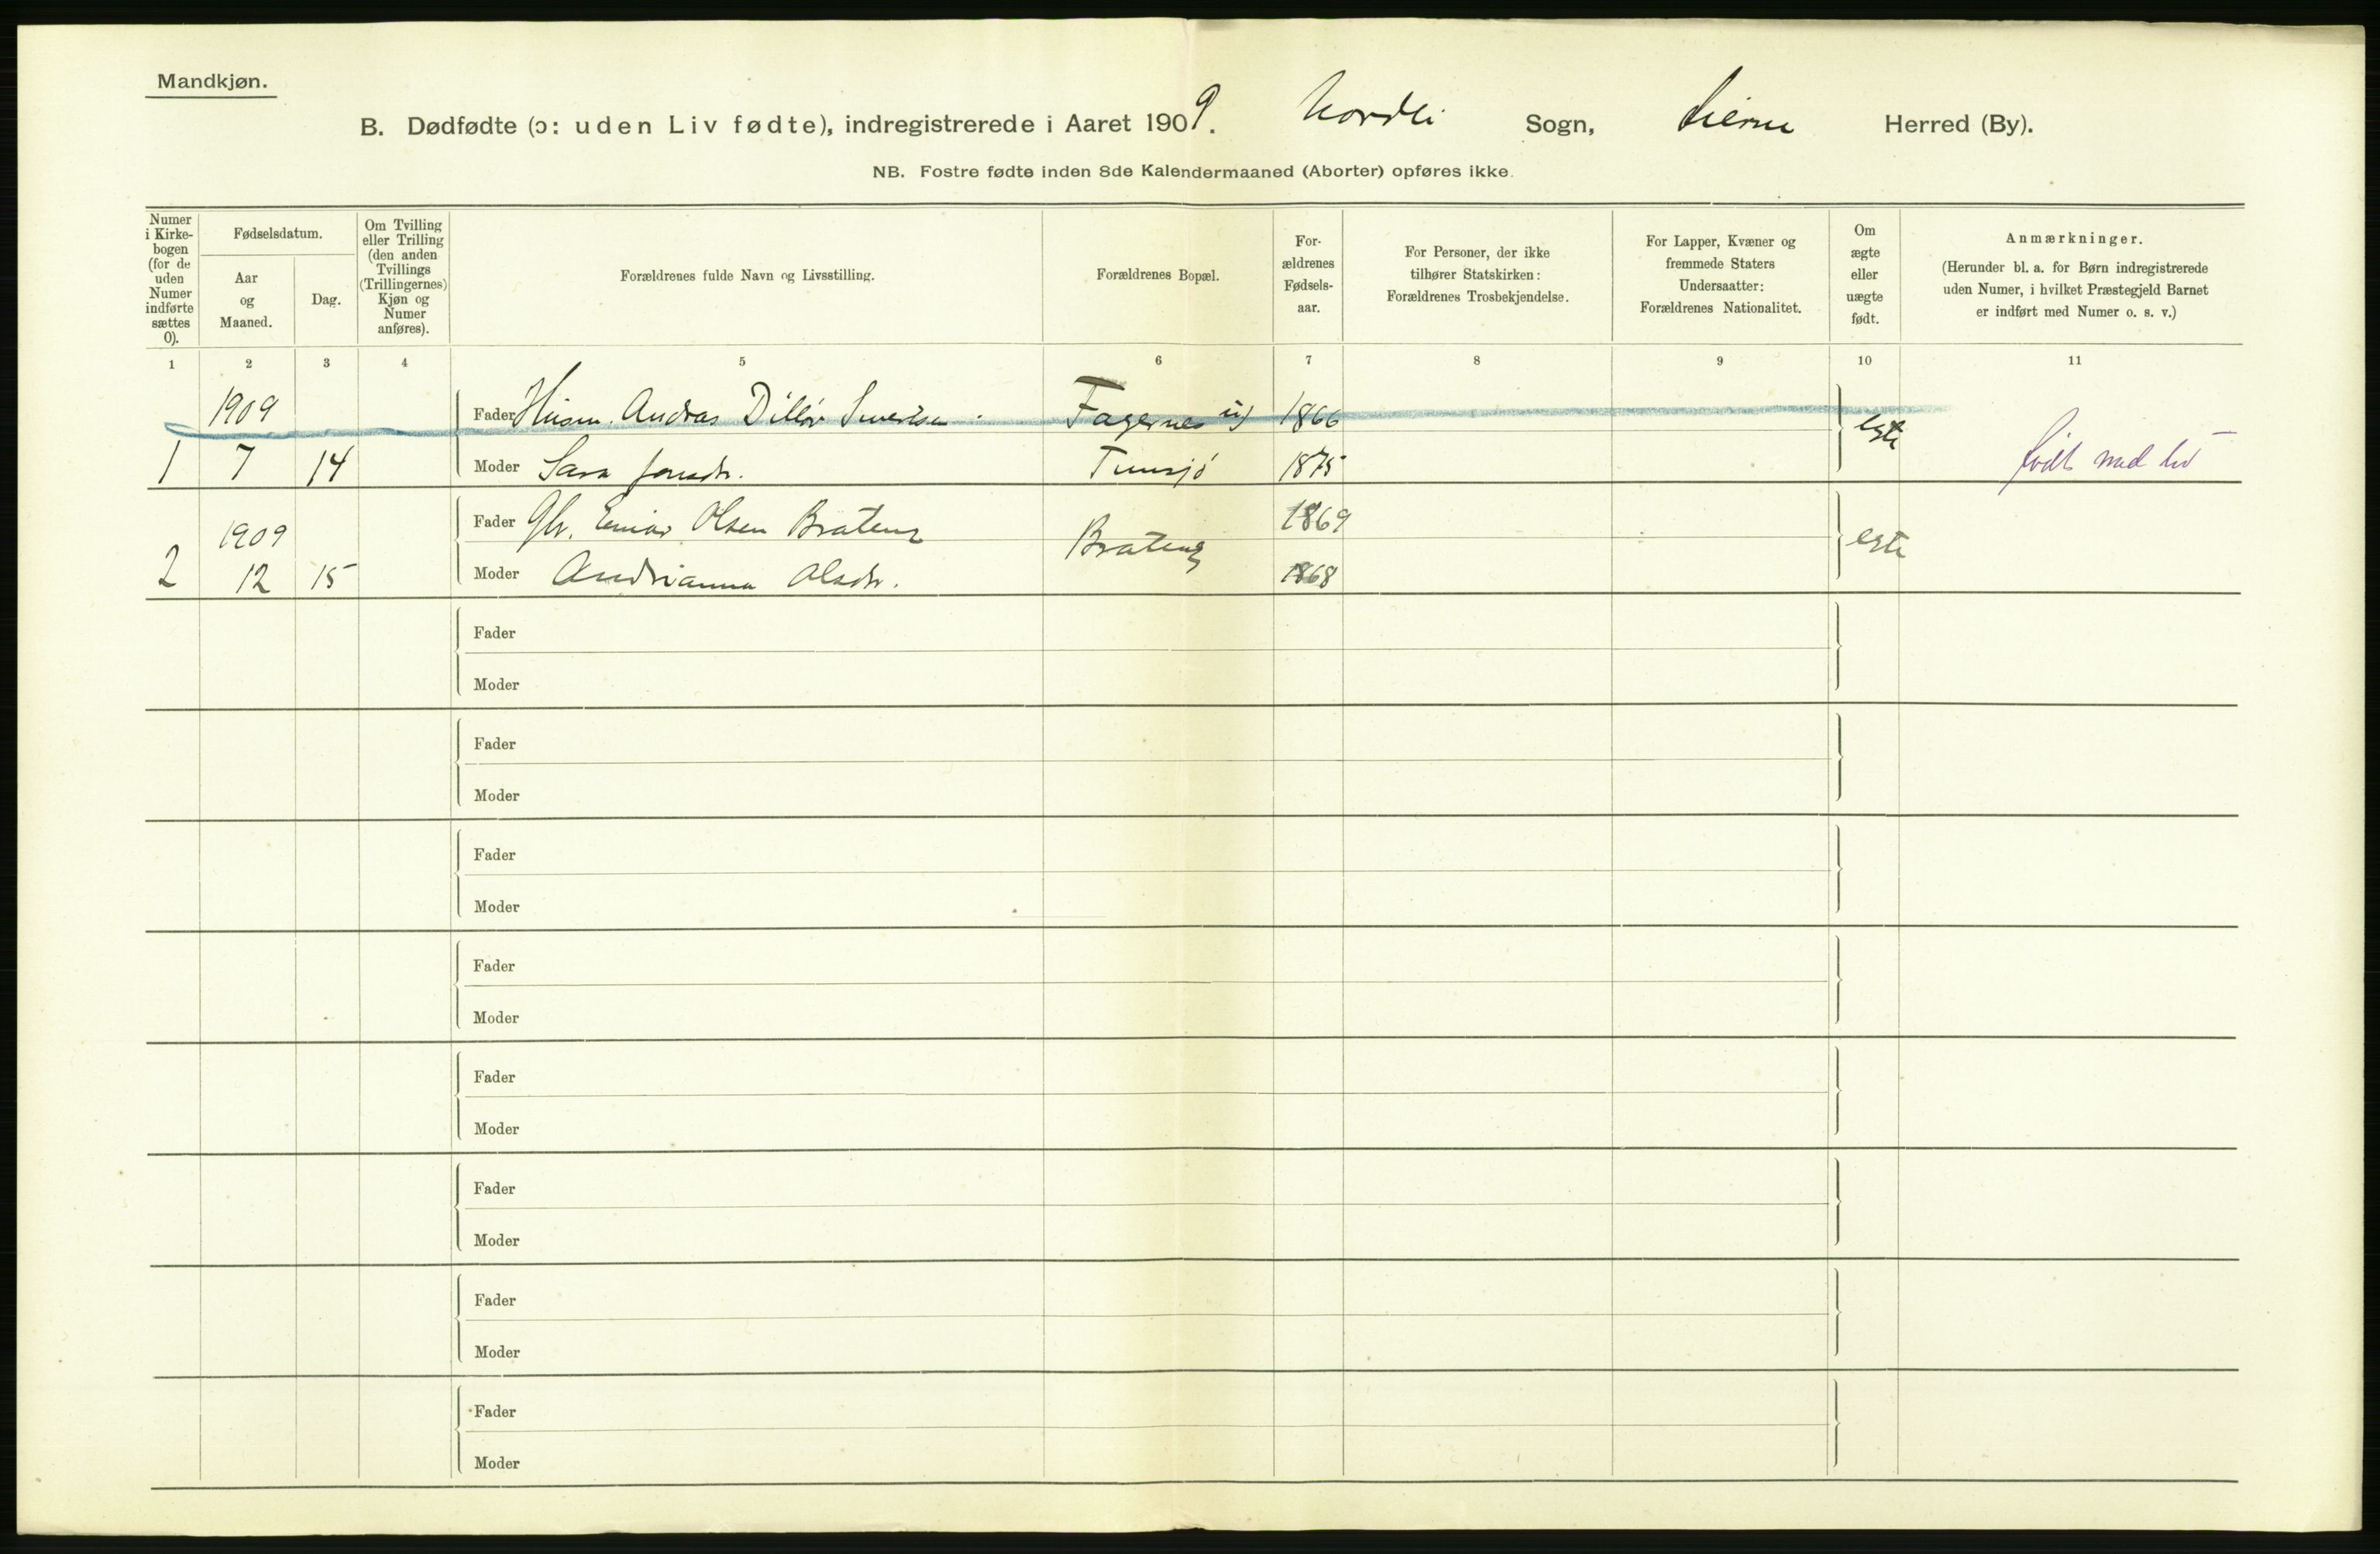 Mandkjøn.
B. Dødfødte (ɔ: uden Liv fødte), indregistrerede i Aaret 1909. Nordli Sogn, Lierne Herred (By).
NB. Fostre fødte inden 8de Kalendermaaned (Aborter) opføres ikke.
Numer
i Kirke-
bogen
(for de
uden
Numer
indførte
sættes
0).
Fødselsdatum.
Aar
og
Maaned.
Dag.
Om Tvilling
eller Trilling
(den anden
Tvillings
(Trillingernes)
Kjøn og
Numer
anføres).
Forældrenes fulde Navn og Livsstilling.
Forældrenes Bopæl.
For-
ældrenes
Fødsels-
aar.
For Personer, der ikke
tilhører Statskirken:
Forældrenes Trosbekjendelse.
For Lapper, Kvæner og
fremmede Staters
Undersaatter:
Forældrenes Nationalitet.
Om
ægte
eller
uægte
født.
Anmærkninger.
(Herunder bl. a. for Børn indregistrerede
uden Numer, i hvilket Præstegjeld Barnet
er indført med Numer o. s. v.)
1 2 3 4 5 6 7 8 9 10 11
1909 Fader Husm. Andras Ditlev Sivertsen Fagernes 1866 egte
1 7 14 Moder Sara Jonsdr. Tunsjö 1875 født med liv
1909 Fader Olsen Brateng Brateng 1869 egte
2 12 15 Moder Andrianna Olsdr. 1868
Fader
Moder
Fader
Moder
Fader
Moder
Fader
Moder
Fader
Moder
Fader
Moder
Fader
Moder
Fader
Moder